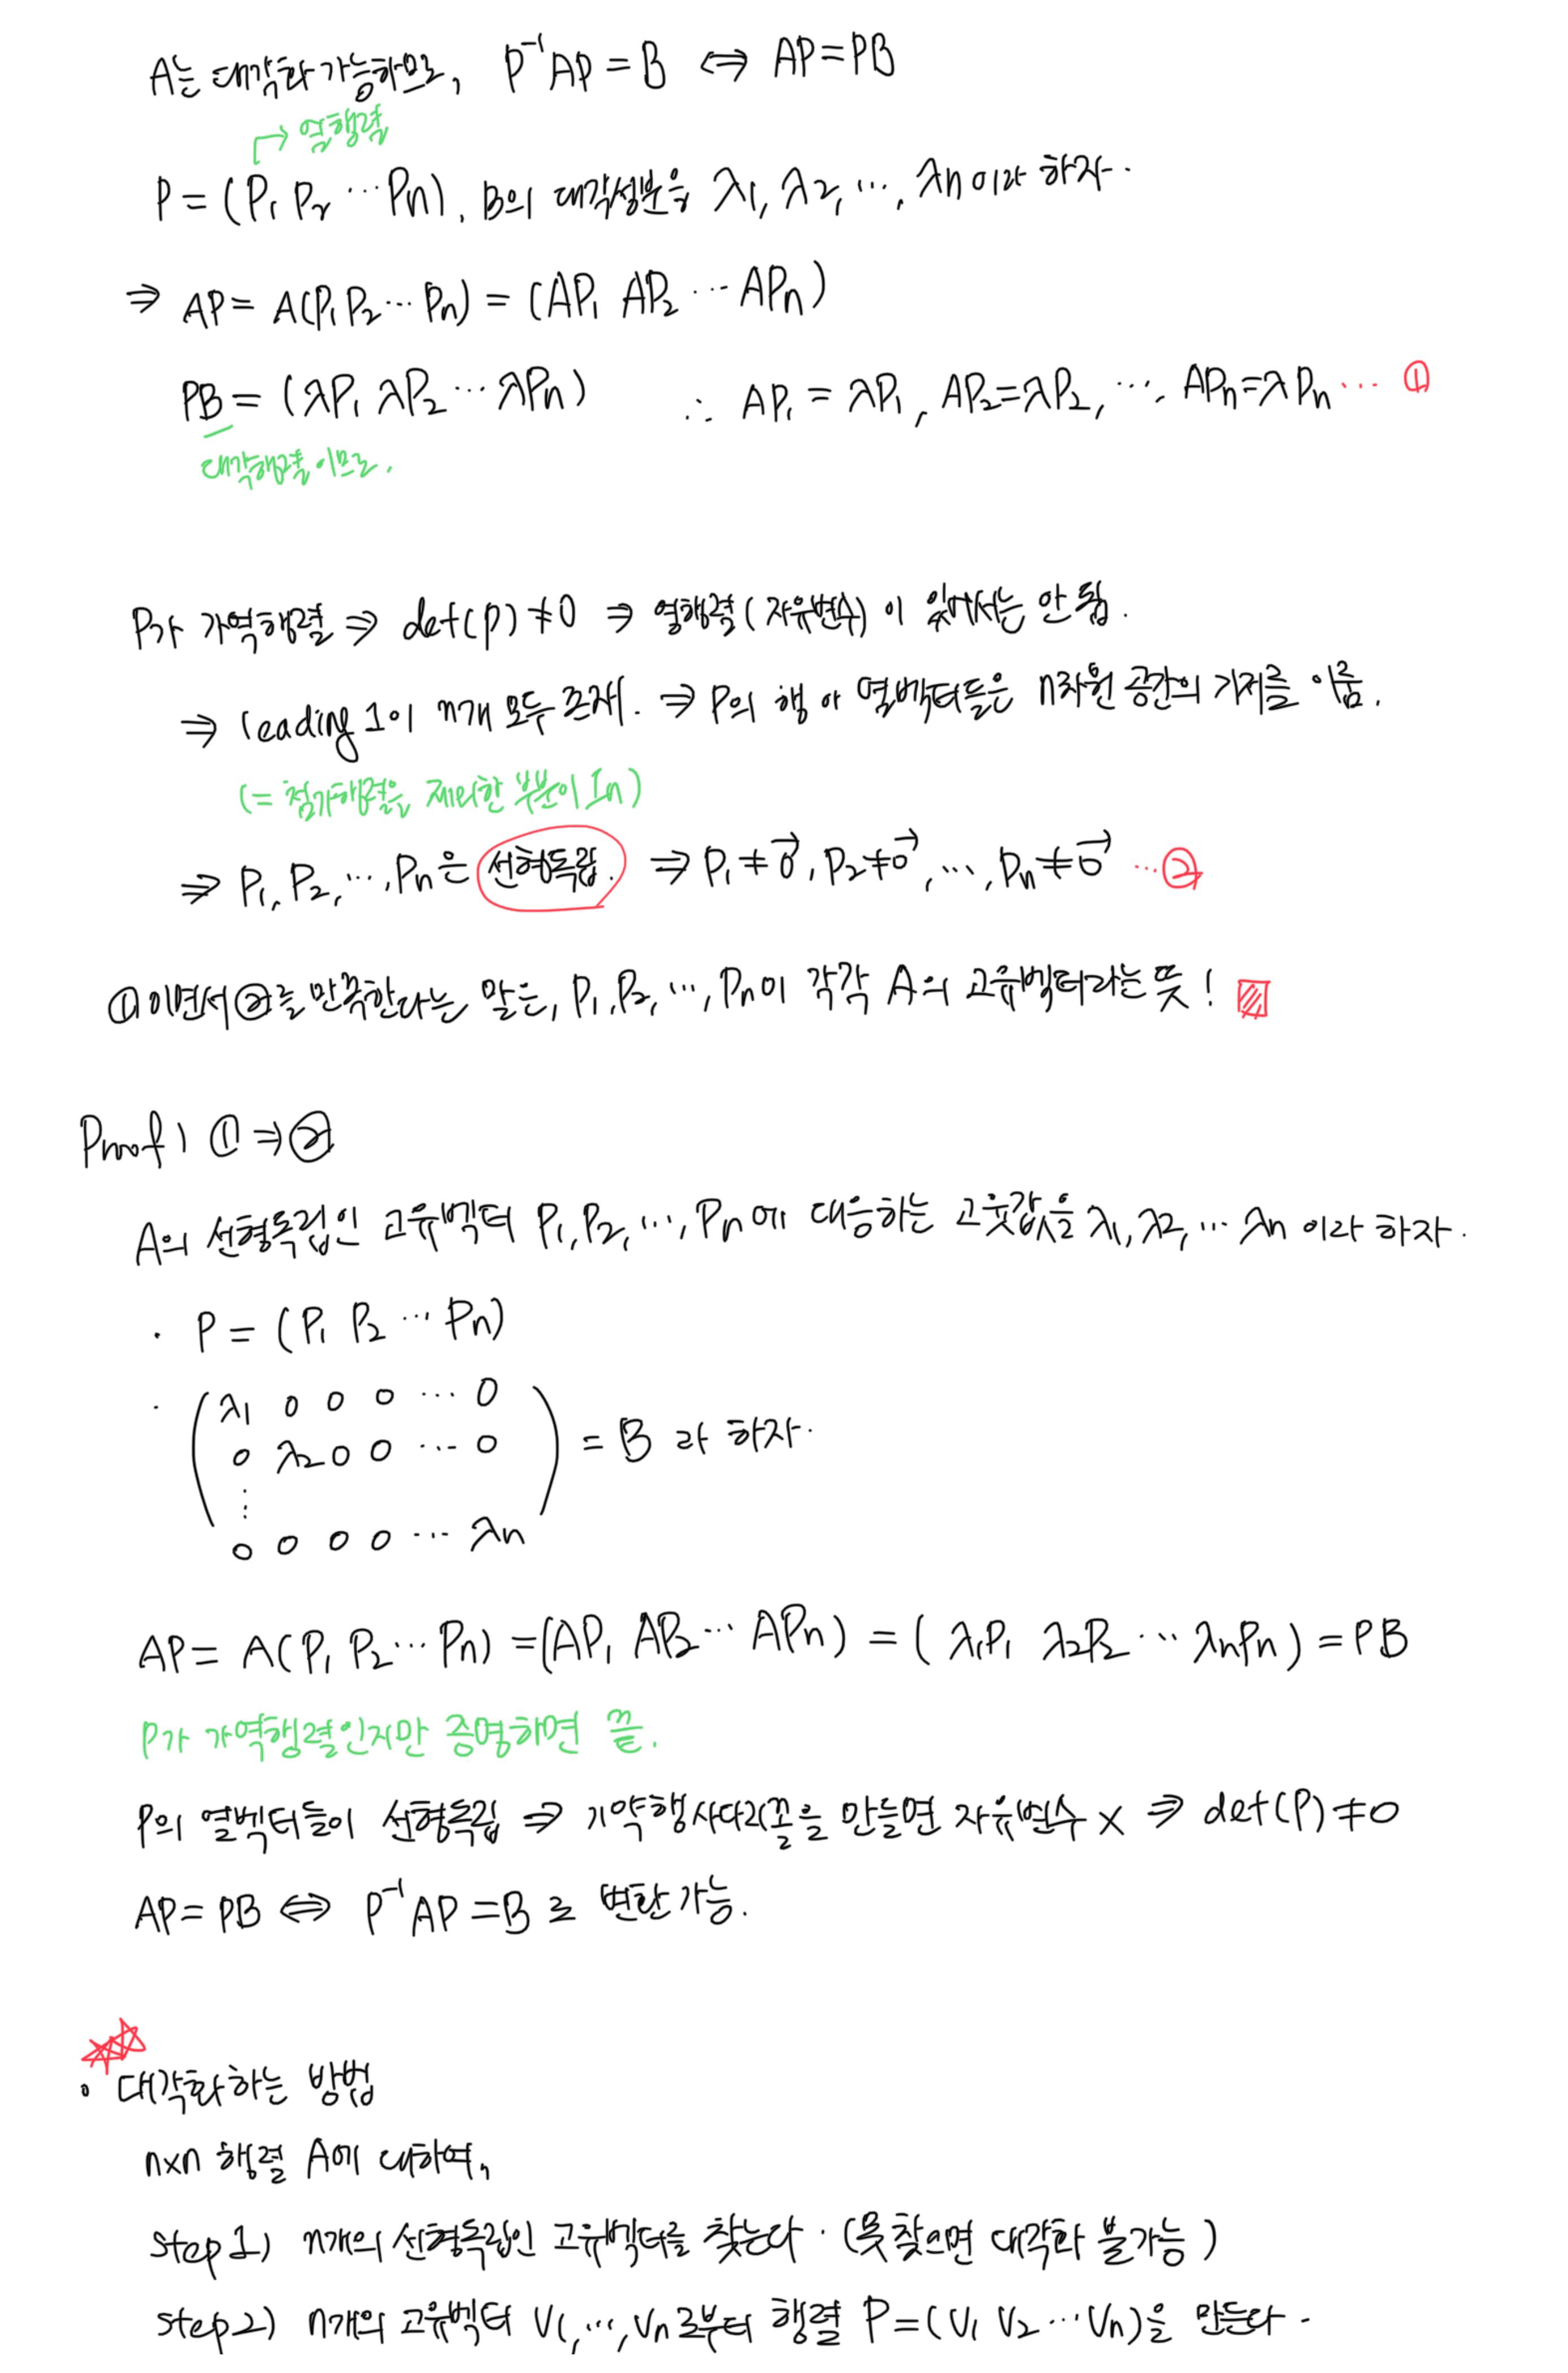 A는 대각화가능하므로, P⁻¹AP = B ⟺ AP = PB
→ 열행렬
P = (P₁ P₂ ⋯ Pn), B의 대각성분을 λ₁, λ₂, ⋯, λn이라 하자.
⇒ AP = A(P₁ P₂ ⋯ Pn) = (AP₁ AP₂ ⋯ APn)
PB = (λP₁ λP₂ ⋯ λPn) ∴ AP₁ = λP₁, AP₂ = λP₂, ⋯, APn = λPn ⋯ ①
대각행렬이므로.
P가 가역행렬 ⇒ det(P) ≠ 0 ⇒ 영행렬(자유변수)이 있어서는 안 됨.
⇒ leading 1이 n개 모두 존재. ⇒ P의 행 아 열벡터들은 n차원 공간의 기저를 이룸.
(= 첨가행렬을 제외한 부분이 In)
⇒ P₁, P₂, ⋯, Pn은 선형독립. ⇒ P₁ ≠ 0⃗, P₂ ≠ 0⃗, ⋯, Pn ≠ 0⃗ ⋯②
①이면서 ②를 만족한다는 말은, P₁, P₂, ⋯, Pn이 각각 A의 고유벡터라는 뜻!
Proof) ① ⇒ ②
A의 선형독립인 고유벡터 P₁, P₂, ⋯, Pn에 대응하는 고윳값을 λ₁, λ₂, ⋯ λn 이라 하자.
· P = (P₁ P₂ ⋯ Pn)
· λ₁ 0 0 0 ⋯ 0
0 λ₂ 0 0 ⋯ 0 = B 라 하자.
⋮
0 0 0 0 ⋯ λn
AP = A(P₁ P₂ ⋯ Pn) = (AP₁ AP₂ ⋯ APn) = (λ₁P₁ λ₂P₂ ⋯ λnPn) = PB
P가 가역행렬인지만 증명하면 끝.
P의 열벡터들이 선형독립 ⇒ 기약행사다리꼴을 만들면 자유변수 X ⇒ det(P) ≠ 0
AP = PB ⟺ P⁻¹AP = B 로 변환 가능.
· 대각화하는 방법
n×n 행렬 A에 대하여,
step 1) n개의 선형독립인 고유벡터를 찾는다. (못 찾으면 대각화 불가능)
step 2) n개의 고유벡터 V₁, ⋯, Vn로부터 행렬 P = (V₁ V₂ ⋯ Vn)을 만든다.